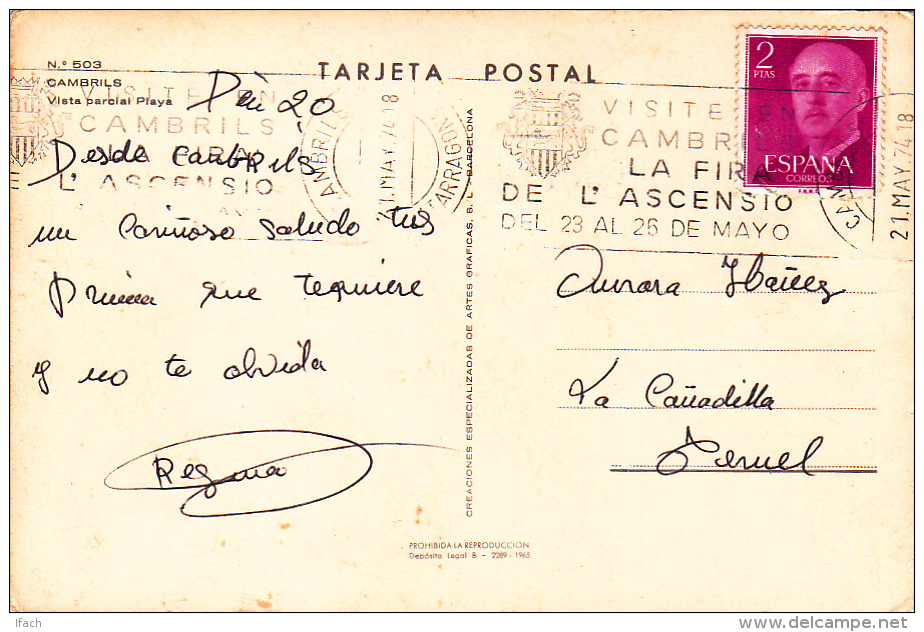 N.º 503
CAMBRILS
Vista parcial Playa
TARJETA POSTAL
Dia 20
Desde Cambrils
un Cariñoso saludo tus
prima que te quiere
y no te olvida
Regina
VISITE EN
CAMBRILS
LA FIRA
DE L'ASCENSIO
VISITE EN
CAMBRILS
LA FIRA
DE L'ASCENSIO
DEL 23 AL 26 DE MAYO
CAMBRILS
21.MAY.74.18
TARRAGONA
2
PTAS
ESPAÑA
CORREOS
21.MAY.74.18
CREACIONES ESPECIALIZADAS DE ARTES GRAFICAS, S. L. - BARCELONA
Aurora Ibañez
La Cañadilla
Teruel
PROHIBIDA LA REPRODUCCION
Depósito Legal B - 2289 - 1965
© Ifach
delcampe.net